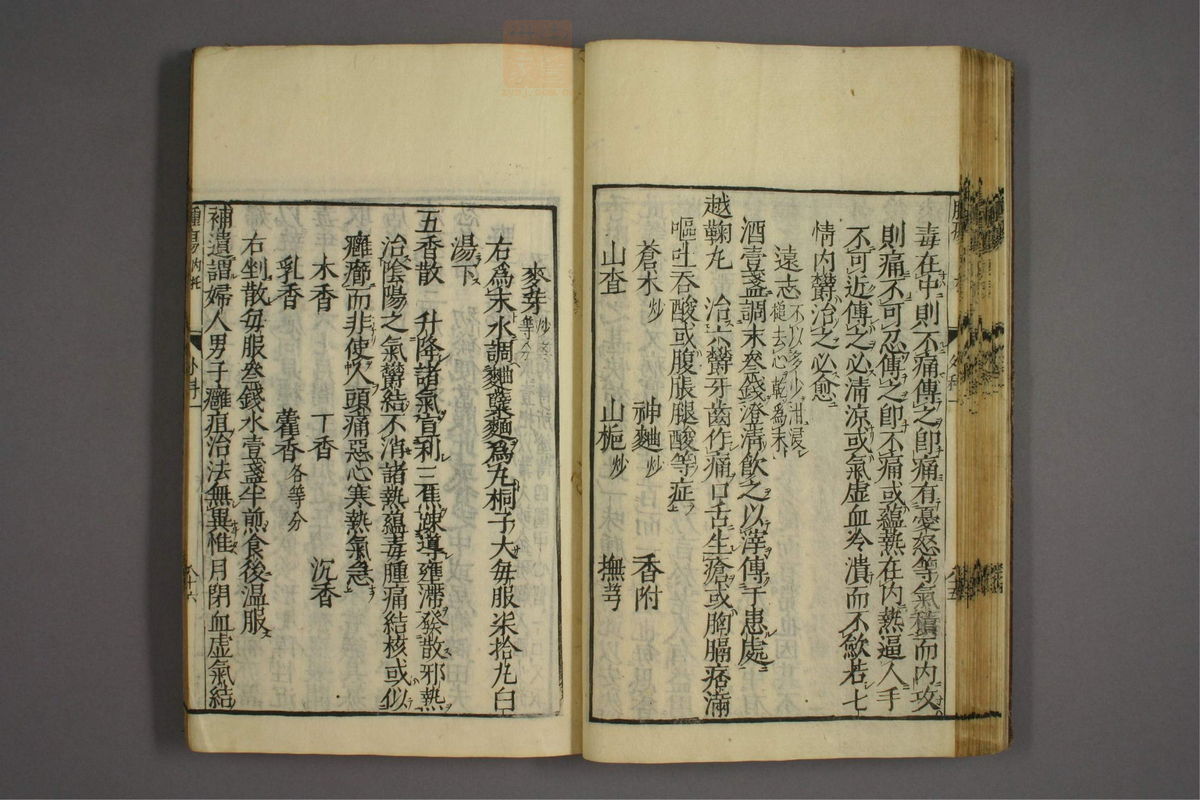 毒在中則不痛傳之即痛有憂怒等氣積而內攻
則痛不可忍傳之即不痛或蘊熱在內熱逼人手
不可近傳之必清涼或氣虛血冷潰而不歛若七
情內鬱治之必愈
遠志不以多少泔浸搥去心乾爲末
酒壹盞調末叄錢澄清飲之以滓傳于患處
越鞠丸 治六鬱牙齒作痛口舌生瘡或胸膈痞滿
嘔吐吞酸或腹脹腿酸等症
蒼朮炒 神麯炒 香附
山查 山梔炒 撫芎
麥芽炒等分
右爲末水調麯蘖麵爲丸桐子大每服柒拾丸白
湯下
五香散 升降諸氣宣利三焦踈導壅滯發散邪熱
治陰陽之氣鬱結不消諸熱蘊毒腫痛結核或似
癰癤而非使人頭痛惡心寒熱氣急
木香 丁香 沉香
乳香 藿香各等分
右剉散每服叄錢水壹盞半煎食後溫服
補遺謂婦人男子癰疽治法無異惟月閉血虛氣結
外科一